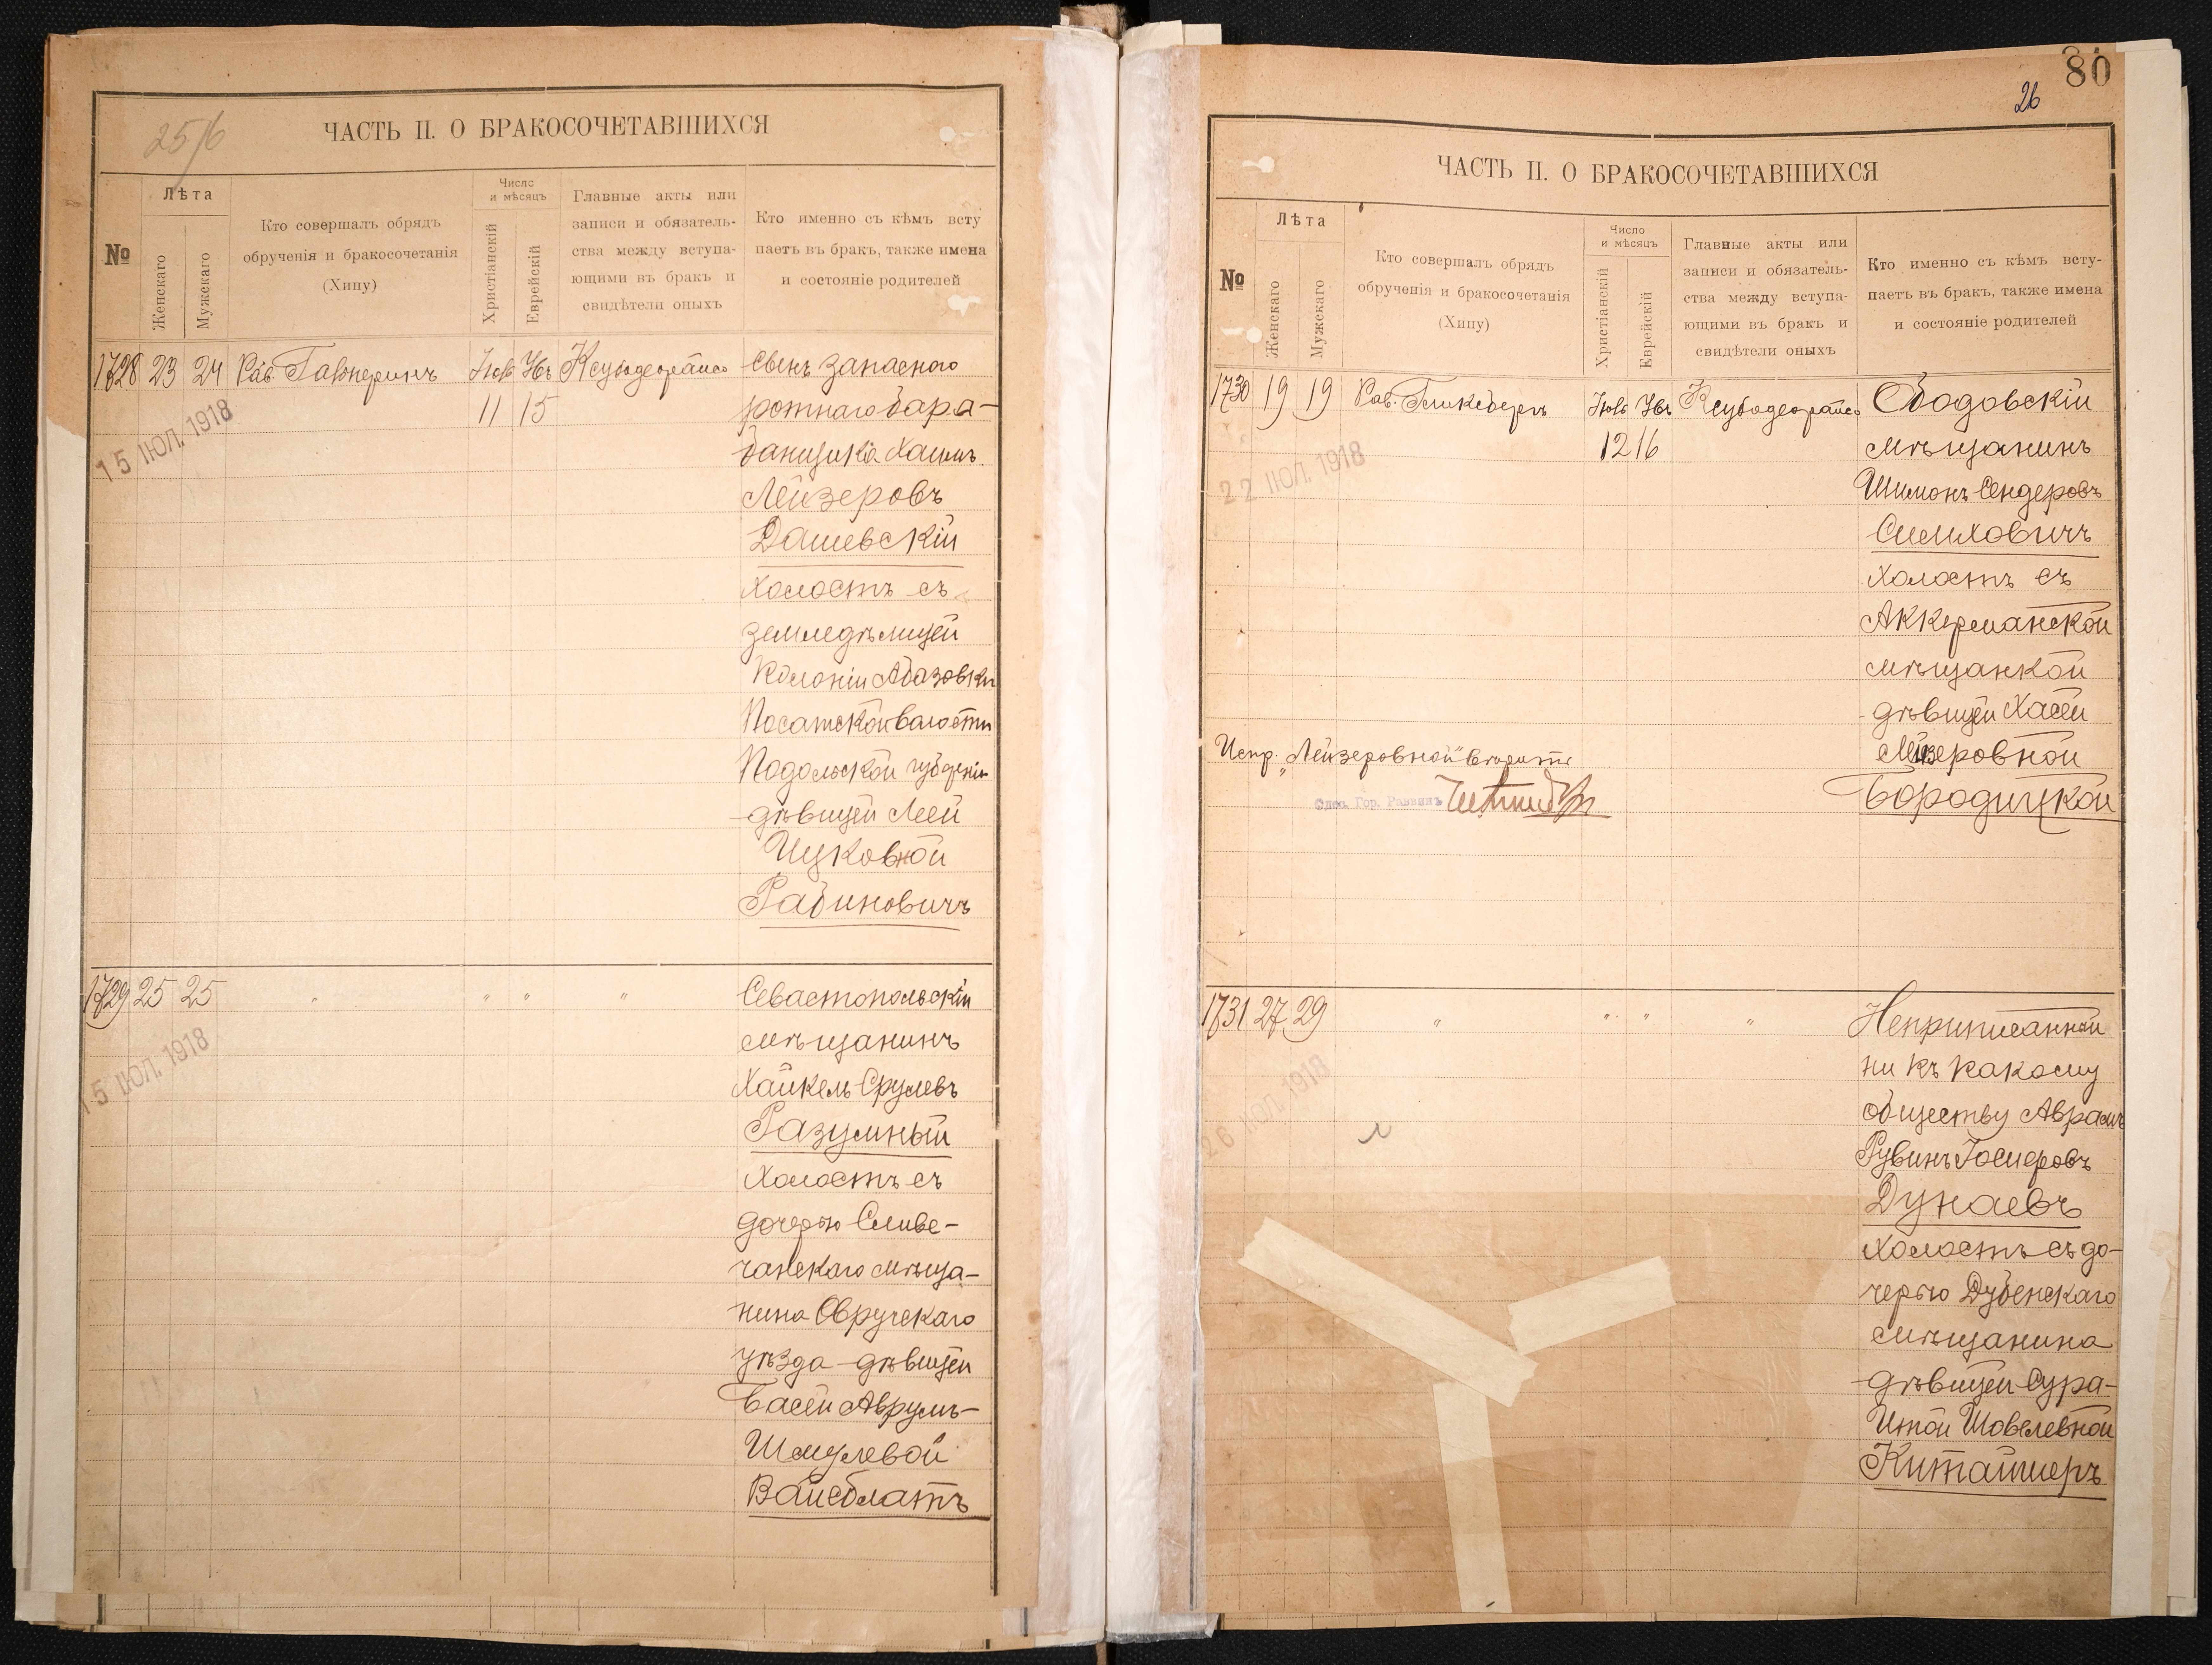 25/6
ЧАСТЬ II. О БРАКОСОЧЕТАВШИХСЯ
№
Лѣта
Женскаго
Мужскаго
Кто совершалъ обрядъ
обрученія и бракосочетанія
(Хипу)
Число
и мѣсяцъ
Христіанскій
Еврейскій
Главные акты или
записи и обязатель-
ства между вступа-
ющими въ бракъ и
свидѣтели оныхъ
Кто именно съ кѣмъ всту
паетъ въ бракъ, также имена
и состояніе родителей
1728 23 24 Рав. Гальперинъ
11 15
15 ІЮЛ. 1918
Сынъ запаснаго
ротнаго бара-
банщика Хаимъ
Лейзеровъ
Дашевскій
холостъ съ
земледѣлицей
Колоніи Абазовки
Подольской губерніи
дѣвицей Леей
Ицковной
Рабиновичъ
1729 25 25 " " " "
15 ІЮЛ. 1918
Севастопольскій
мѣщанинъ
Хайкель Срулевъ
Разумный
холостъ съ
дочерью Слове-
чанскаго мѣща-
нина Овручскаго
уѣзда дѣвицей
Басей Аврумъ-
Шмулевой
Вайсблатъ
80
26
ЧАСТЬ II. О БРАКОСОЧЕТАВШИХСЯ
№
Лѣта
Женскаго
Мужскаго
Кто совершалъ обрядъ
обрученія и бракосочетанія
(Хипу)
Число
и мѣсяцъ
Христіанскій
Еврейскій
Главные акты или
записи и обязатель-
ства между вступа-
ющими въ бракъ и
свидѣтели оныхъ
Кто именно съ кѣмъ всту-
паетъ въ бракъ, также имена
и состояніе родителей
1730 19 19 Рав. Гликсбергъ
12 16
22 ІЮЛ. 1918
Ободовскій
мѣщанинъ
Шимонъ Сендеровъ
Симховичъ
холостъ съ
Аккерманской
мѣщанкой
дѣвицей Хасей
Лейзеровной
Бородицкой
Испр. „Лейзеровной" вѣрить
Одес. Гор. Раввинъ
1731 27 29 " " " "
26 ІЮЛ. 1918
Неприписанный
ни къ какому
обществу Аврамъ
Рувинъ Іосиеровъ
Дунаевъ
холостъ съ до-
черью Дубенскаго
мѣщанина
дѣвицей Сура-
Итой Шовелевной
Китайшеръ